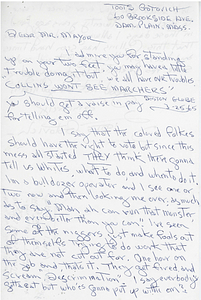 TOOTS GOTOVICH
60 BROOKSIDE AVE.
JAM. PLAIN. MASS.
Dear Mr. Mayor
I admire you for standing
up on your two feet, you may have vote
trouble doing it but, we all have our troubles
COLLINS WONT SEE MARCHERS"
BOSTON GLOBE
U should get a raise in pay 3-25-65
for telling em off.
I say that the colored folkes
should have the right to vote but since this
mess all started THEY think there gonna
tell us whites, what to do and when to do it.
I'm a bulldozer operator and I see one or
two every now and then looking me over. as much
as to say, man ah can run that monster
and everything them you can. I've seen
some of the niggers just make fools out
of themselfs trying to do work that
they are not cut out for. One hour on
the job they make it. They get fired and
scream Discrimination! I say everybody's
gotta eat but who's gonna put up with em